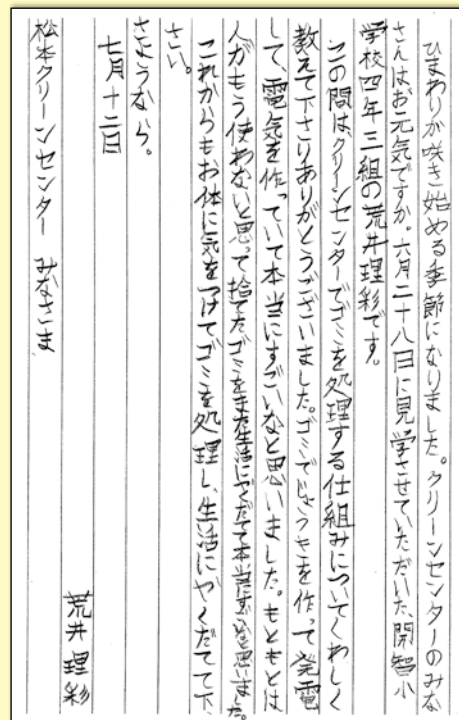 ひまわりが咲き始める季節になりました。クリーンセンターのみな
さんはお元気ですか。六月二十八日に見学させていただいた、開智小
学校四年三組の荒井理彩です。
この間は、クリーンセンターでゴミを処理する仕組みについてくわしく
教えて下さりありがとうございました。ゴミでじょうきを作って発電
して、電気を作っていて本当にすごいなと思いました。もともとは
人がもう使わないと思って捨てたゴミをまた生活にやくだてて本当にすごいと思いました。
これからもお体に気をつけてゴミを処理し、生活にやくだてて下
さい。
さようなら。
七月十二日
荒井理彩
松本クリーンセンター みなさま